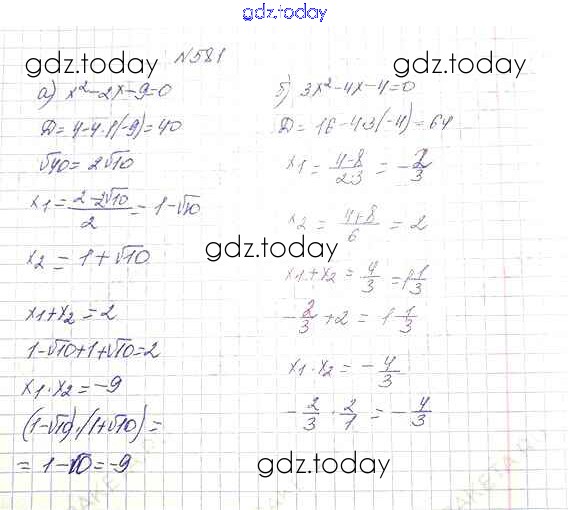 gdz.today
№581
gdz.today
gdz.today
а) x²-2x-9=0
D=4-4·1(-9)=40
√40=2√10
x1=(2-2√10)/2=1-√10
x2=1+√10
x1+x2=2
1-√10+1+√10=2
x1·x2=-9
(1-√10)·(1+√10)=
=1-10=-9
б) 3x²-4x-4=0
D=16-4·3(-4)=64
x1=(4-8)/(2·3)=-2/3
x2=(4+8)/6=2
gdz.today
x1+x2=4/3=1 1/3
-2/3+2=1 1/3
x1·x2=-4/3
-2/3·2/1=-4/3
gdz.today